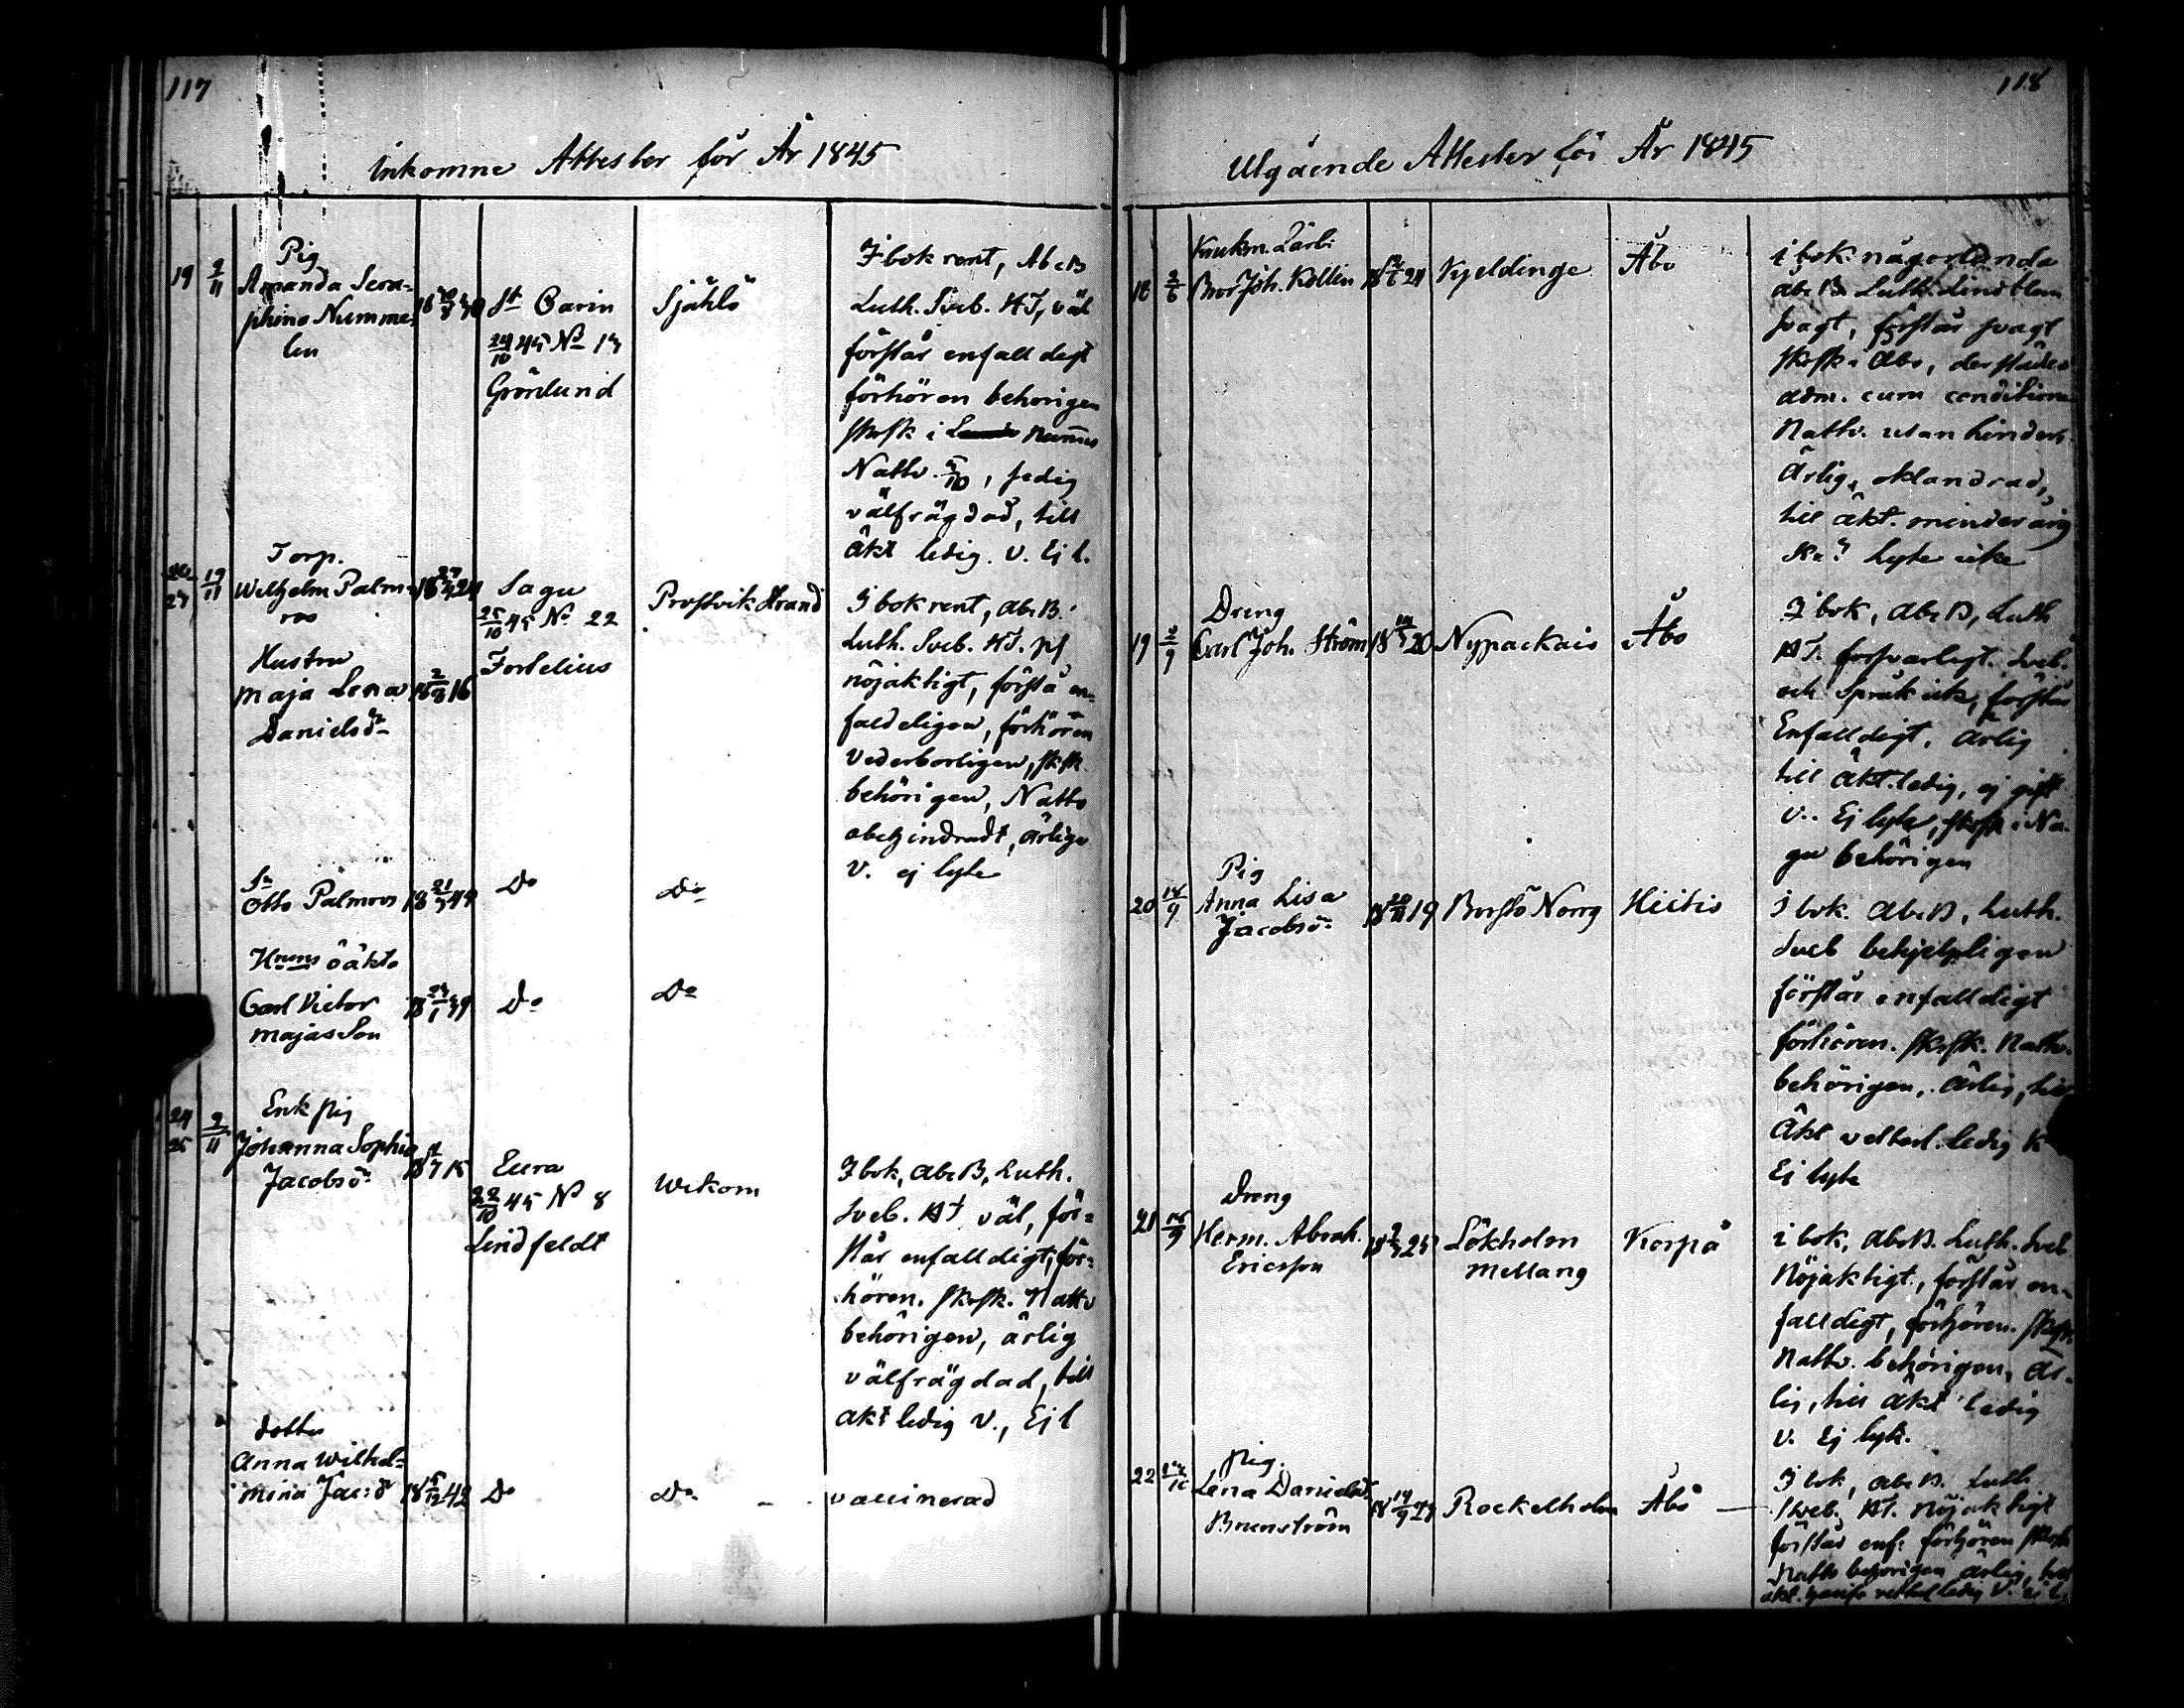 117
Inkomne Attester för År 1845
19 2/11
Pig
Amanda Sera-
phina Numme-
lin
St Carin
24/10 45 No 13
Grönlund
Sjählö
I bok rent, AbcB
Luth. Sveb. HT, väl
förstår enfalldigt
förhören behörigen
skrsk i Nummis
Nattv. 5/10, sedig
välfrägdad, till
äkt ledig. V. Ej l.
19/11
Torp.
Wilhelm Palm-
ros
Sagu
25/10 45 No 22
Forselius
Prostvik Strand
Hustru
Maja Lena 18 2/3 16
Danielsdr
I bok rent, AbcB.
Luth. Sveb. HT.
nöjaktigt, förstå en-
faldeligen, förhören
vederborligen, skrsk.
behörigen, Nattv
obehindradt, ärliga
V. ej lyte
Sn
Otto Palmros
Do
Do
Hnens oäkta
Carl Victor
Majas Son
Do
Do
24
25 2/11
Enk pig
Johanna Sophia
Jacobsdr
Eura
22/10 45 No 8
Lindfeldt
Wikom
I bok, AbcB, Luth.
Sveb. HT väl, för-
står enfalldigt, för-
hören. skrsk. Nattv
behörigen, ärlig
välfrägdad, till
äkt ledig V., Ej l
dotter
Anna Wilhel-
mina Jac:dr 18 5/12 42
Do
Do
vaccinerad
118
Utgående Attester för År 1845
18 2/6
Joh. Kollin
Kjeldinge
Åbo
i bok någorlunda
AbcB Luth. Lindblom
svagt, förstår svagt
skrsk i Åbo, derstädes
adm. cum conditione
Nattv. utan hinder.
Ärlig, oklandrad,
till äkt. minderårig
lyte icke
19
Dreng
Carl Joh. Ström
Nypackais
Åbo
I bok, AbcB, Luth
HT. forsvarligt. Sveb.
och Språk ick, förstår
Enfalldigt. Ärlig
till äkt. ledig, ej gift
V.. Ej lyte, skrsk i Na-
gu behörigen
20
Pig
Anna Lisa
Jacobsdr
18 20/11 19
Borstö Norrg
Hiitis
I bok. AbcB, Luth.
Sveb behjelpligen
förstår enfalldigt
förhören. skrsk. Nattv.
behörigen, Ärlig, till
Äkt vetterl. ledig K
Ej lyte
21
Dreng
Herm. Abrah.
Ericsson
Lökholm
Mellang
Korpo
i bok, AbcB. Luth. Sveb
Nöjaktigt, förstår en-
falldigt, förhören. skrsk.
Nattv. behörigen, är-
lig, till äkt ledig
V. Ej lyte.
22
pig.
Lena Danielsdr
Brunström
Rockelholm
Åbo
I bok, AbcB. Luth
Sveb. HT. Nöjaktigt
förstår enf: förhören skrsk
Nattv behörigen ärlig, till
ledig V.